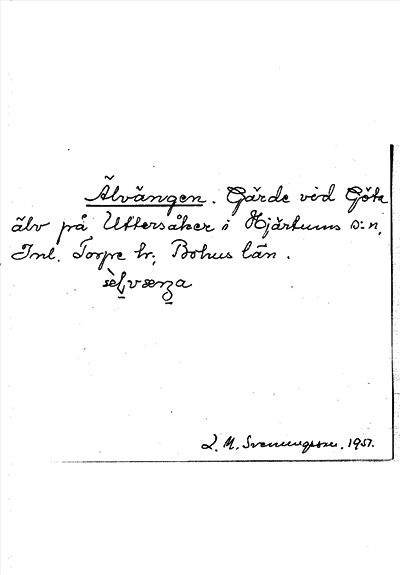 Älvängen. Gärde vid Göta
älv på Uttersåker i Hjärtums s:n,
Inl. Torpe hr, Bohus län.
L. M. Svenungsson. 1951.